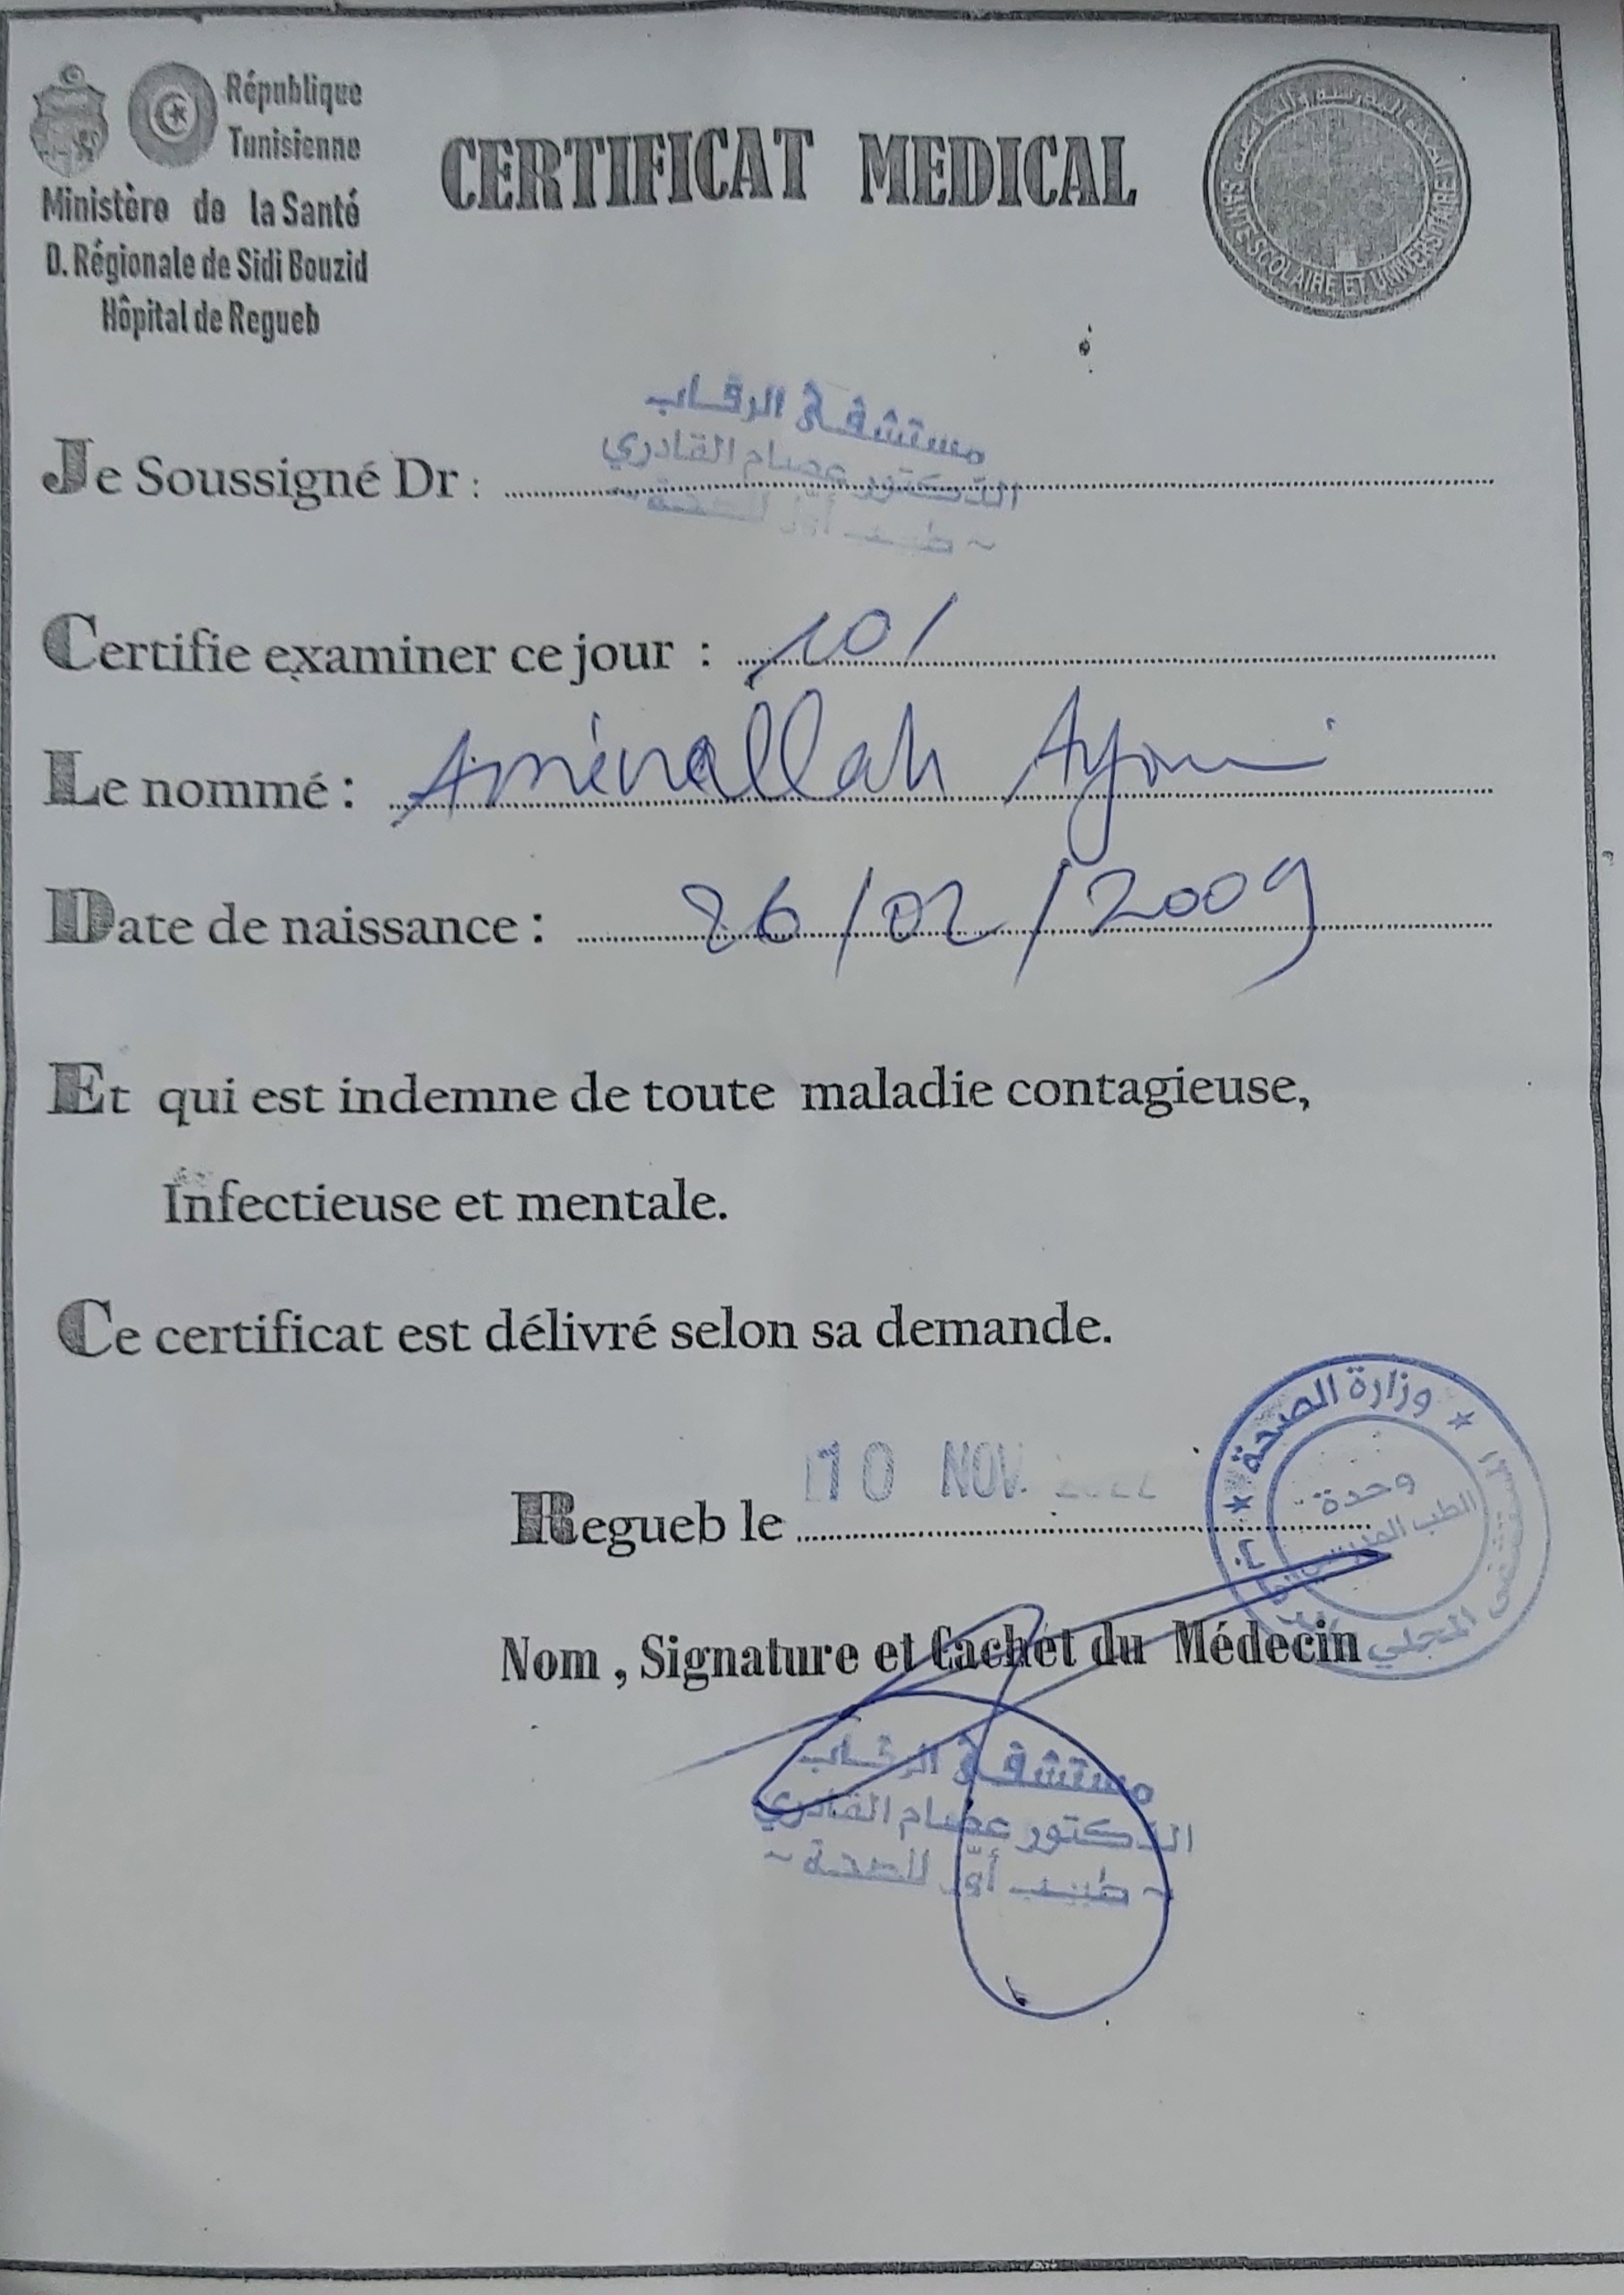 République
Tunisienne
Ministère de la Santé
D. Régionale de Sidi Bouzid
Hôpital de Regueb
CERTIFICAT MEDICAL
SANTE SCOLAIRE ET UNIVERSITAIRE
مستشفى الرقاب
الدكتور عصام القادري
Je Soussigné Dr :
Certifie examiner ce jour : 101
Le nommé : Aminallah
Date de naissance : 26/02/2009
Et qui est indemne de toute maladie contagieuse,
Infectieuse et mentale.
Ce certificat est délivré selon sa demande.
Regueb le 10 NOV. 2022
وزارة الصحة
وحدة
الطب المدرسي
المستشفى المحلي
Nom , Signature et Cachet du Médecin
مستشفى الرقاب
الدكتور عصام القادري
~ طبيب أوّل للصحة ~